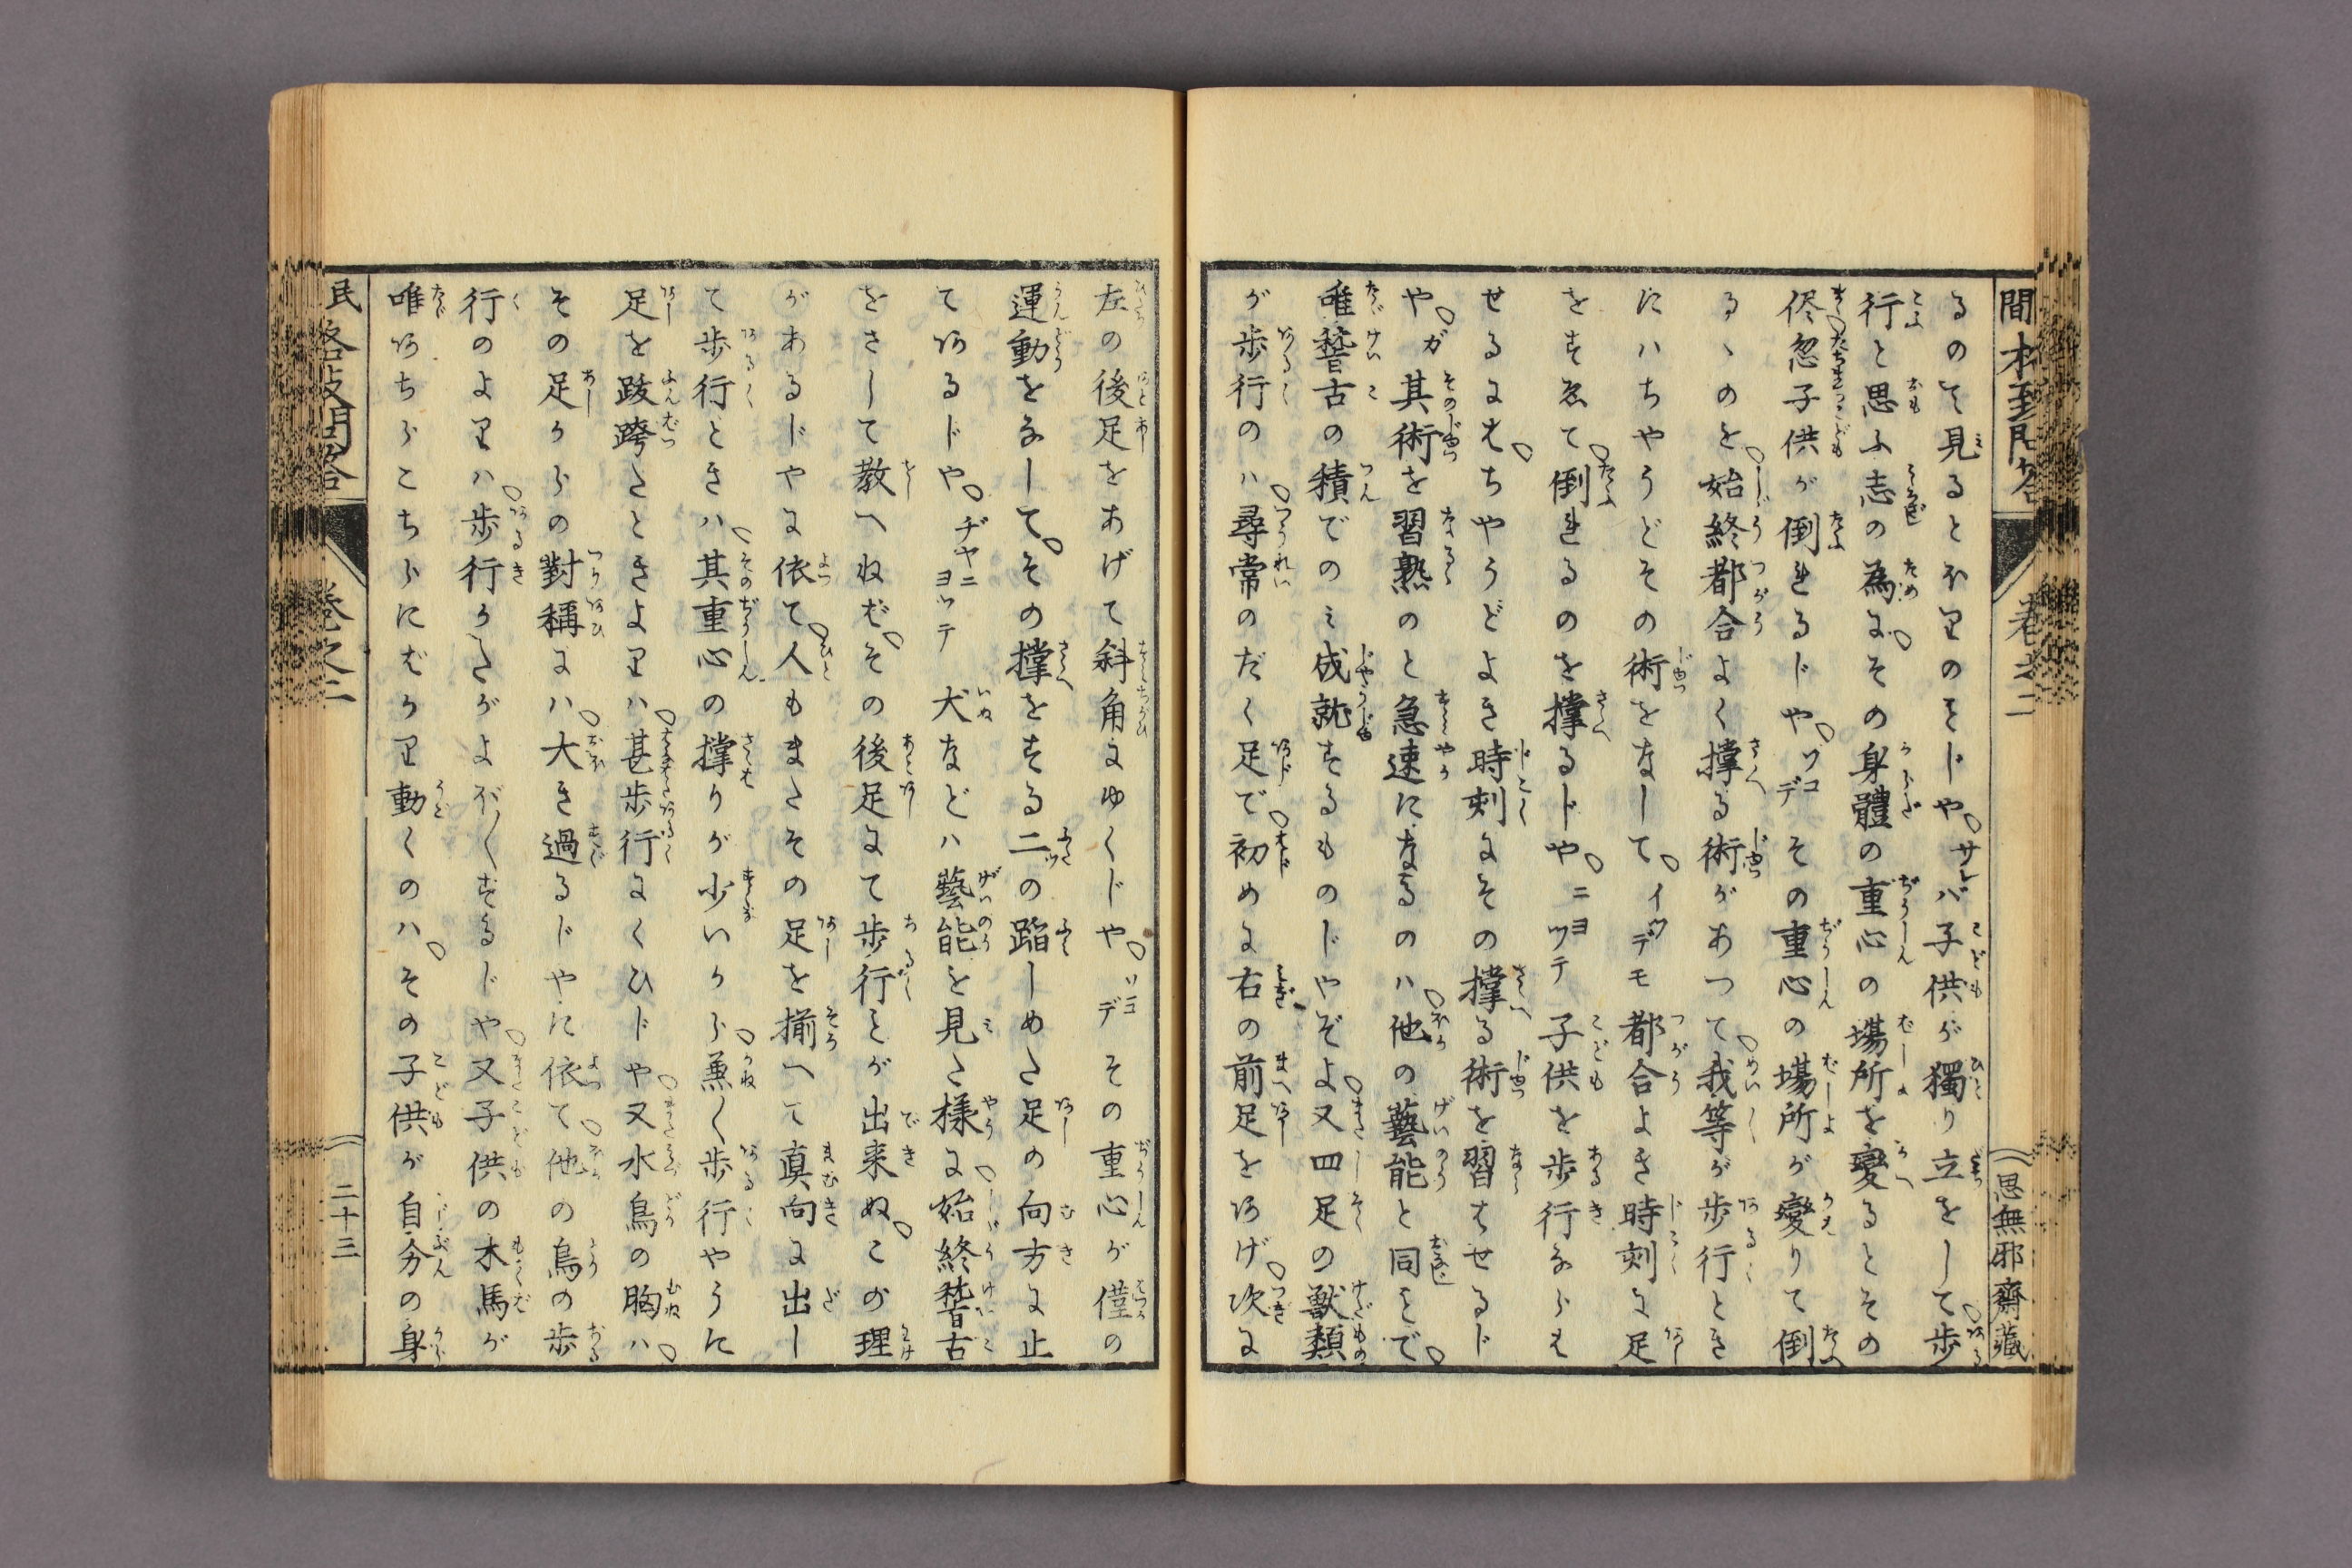 るのを見るとをりのをドや。サレバ子供が獨り立をして。歩
行と思ふ志の為に。その身體の重心の場所を變るとその
侭。忽子供が倒れるドや。ソコデその重心の場所が變りて倒
るゝのを。始終都合よく撑る術があつて。我等が歩行とき
にハちやうどその術をなして。イツデモ都合よき時刻に足
をすゑて。倒れるのを撑るドや。ニヨツテ子供を歩行ならハ
せるにハ。ちやうどよき時刻にその撑る術を習ハせるド
や。ガ其術を習熟のと急速になるのハ。他の藝能と同をで。
唯稽古の積でのミ成就するものじやぞよ。又四足の獣類
が歩行のハ。尋常のだく足で。初めに右の前足をあげ。次に
左の後足をあげて斜角にゆくじや。ソコデその重心が僅の
運動をなして。その撑をする二の蹈しめた足の向方に止
てあるドや。ヂヤニヨツテ犬などハ藝能を見た様に。始終稽古
をさして教へねば。その後足にて歩行とが出来ぬ。この理
があるドやに依て。人もまたその足を揃へて真向に出し
て歩行ときハ。其重心の撑りが少いから。兼く歩行やうに
足を跋跨たときよりハ。甚歩行にくひドや。又水鳥の胸ハ。
その足からの對稱にハ。大き過るドやに依て。他の鳥の歩
行のよりハ。歩行かたがよぼ〱するドや。又子供の木馬が
唯あちらこちらにばかり動くのハ。その子供が自分の身
巻之二
二十三
思無邪齋藏